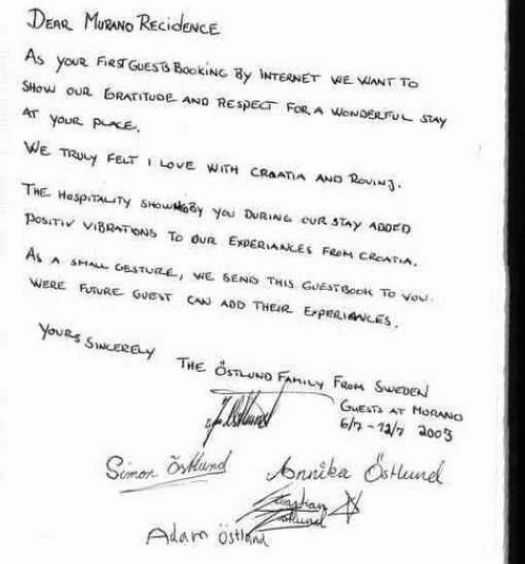 DEAR MURANO RECIDENCE
AS YOUR FIRST GUESTS BOOKING BY INTERNET WE WANT TO
SHOW OUR GRATITUDE AND RESPECT FOR A WONDERFUL STAY
AT YOUR PLACE.
WE TRULY FELT I LOVE WITH CROATIA AND ROVINJ.
THE HOSPITALITY SHOWN BY YOU DURING OUR STAY ADDED
POSITIV VIBRATIONS TO OUR EXPERIANCES FROM CROATIA.
AS A SMALL GESTURE, WE SEND THIS GUESTBOOK TO YOU
WERE FUTURE GUEST CAN ADD THEIR EXPERIANCES.
YOURS SINCERELY
THE ÖSTLUND FAMILY FROM SWEDEN
GUESTS AT MURANO
6/7 - 12/7 2003
Simon Östlund
Annika Östlund
Östlund
Adam Östlund